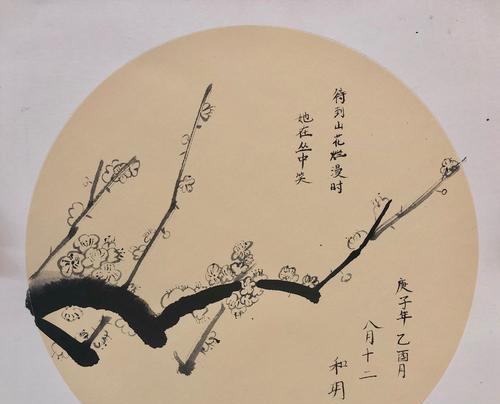 待到山花烂漫时
她在丛中笑
庚子年乙酉月
八月十二
和明